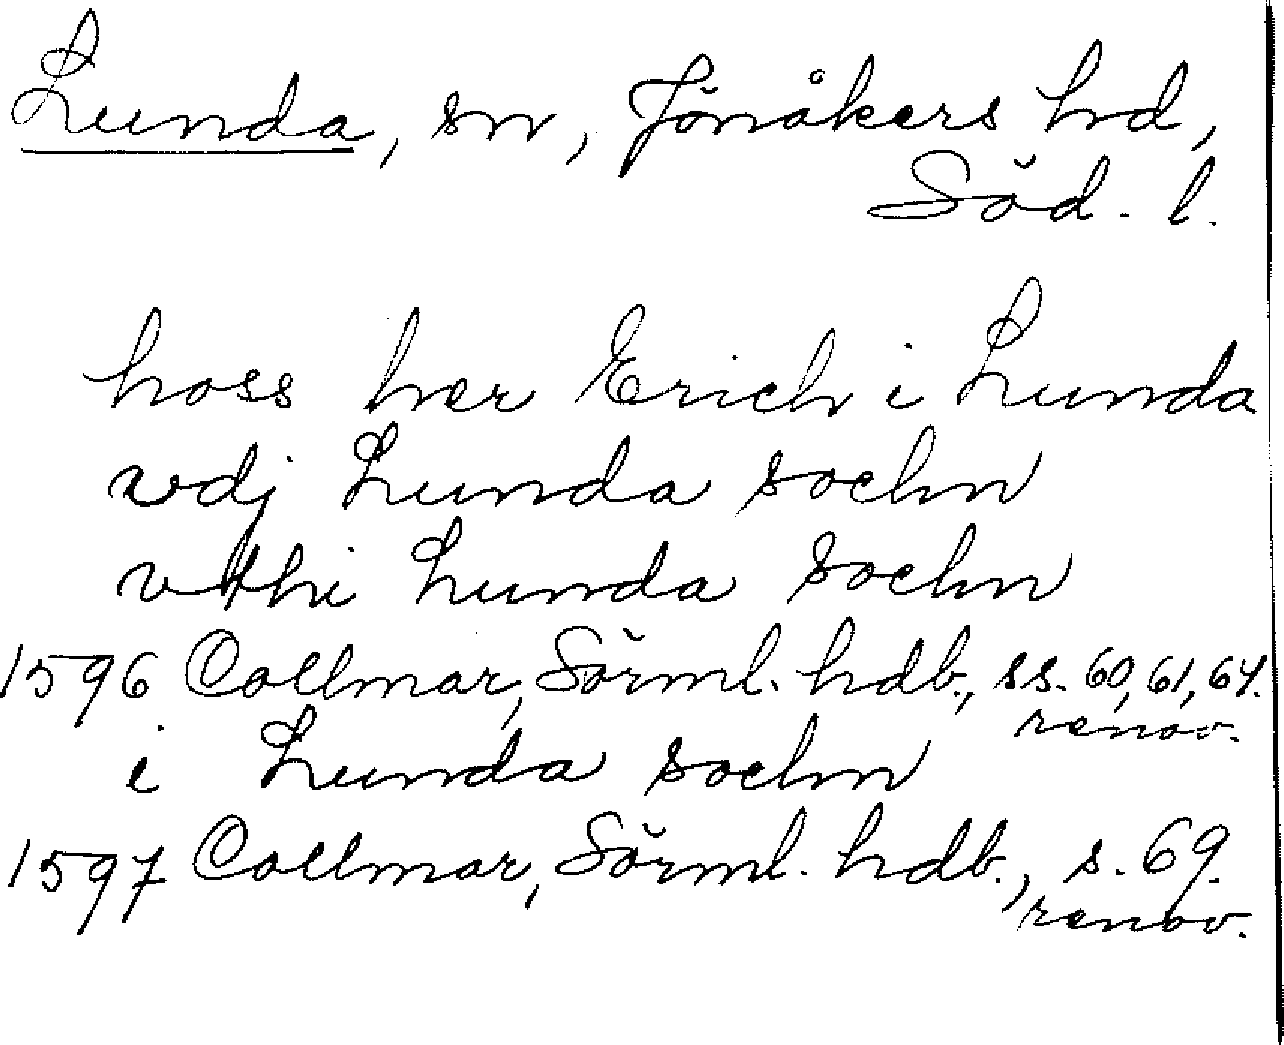 Lunda, sn, Jönåkers hd,
Söd. l.
hoss her Erich i Lunda
vdj Lunda sochn
vthi Lunda sochn
1596 Collmar, Sörml. hdb., ss. 60, 61, 64.
renov.
i Lunda sochn
1597 Collmar, Sörml. hdb., s. 69.
renov.